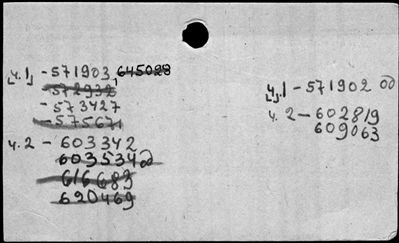 ч.1 - 571903, 645028
572932
- 573427
- 575671
ч.2 - 603342
603534 od
616683
620469
ч.1 - 571902 od
ч.2 - 602819
609063